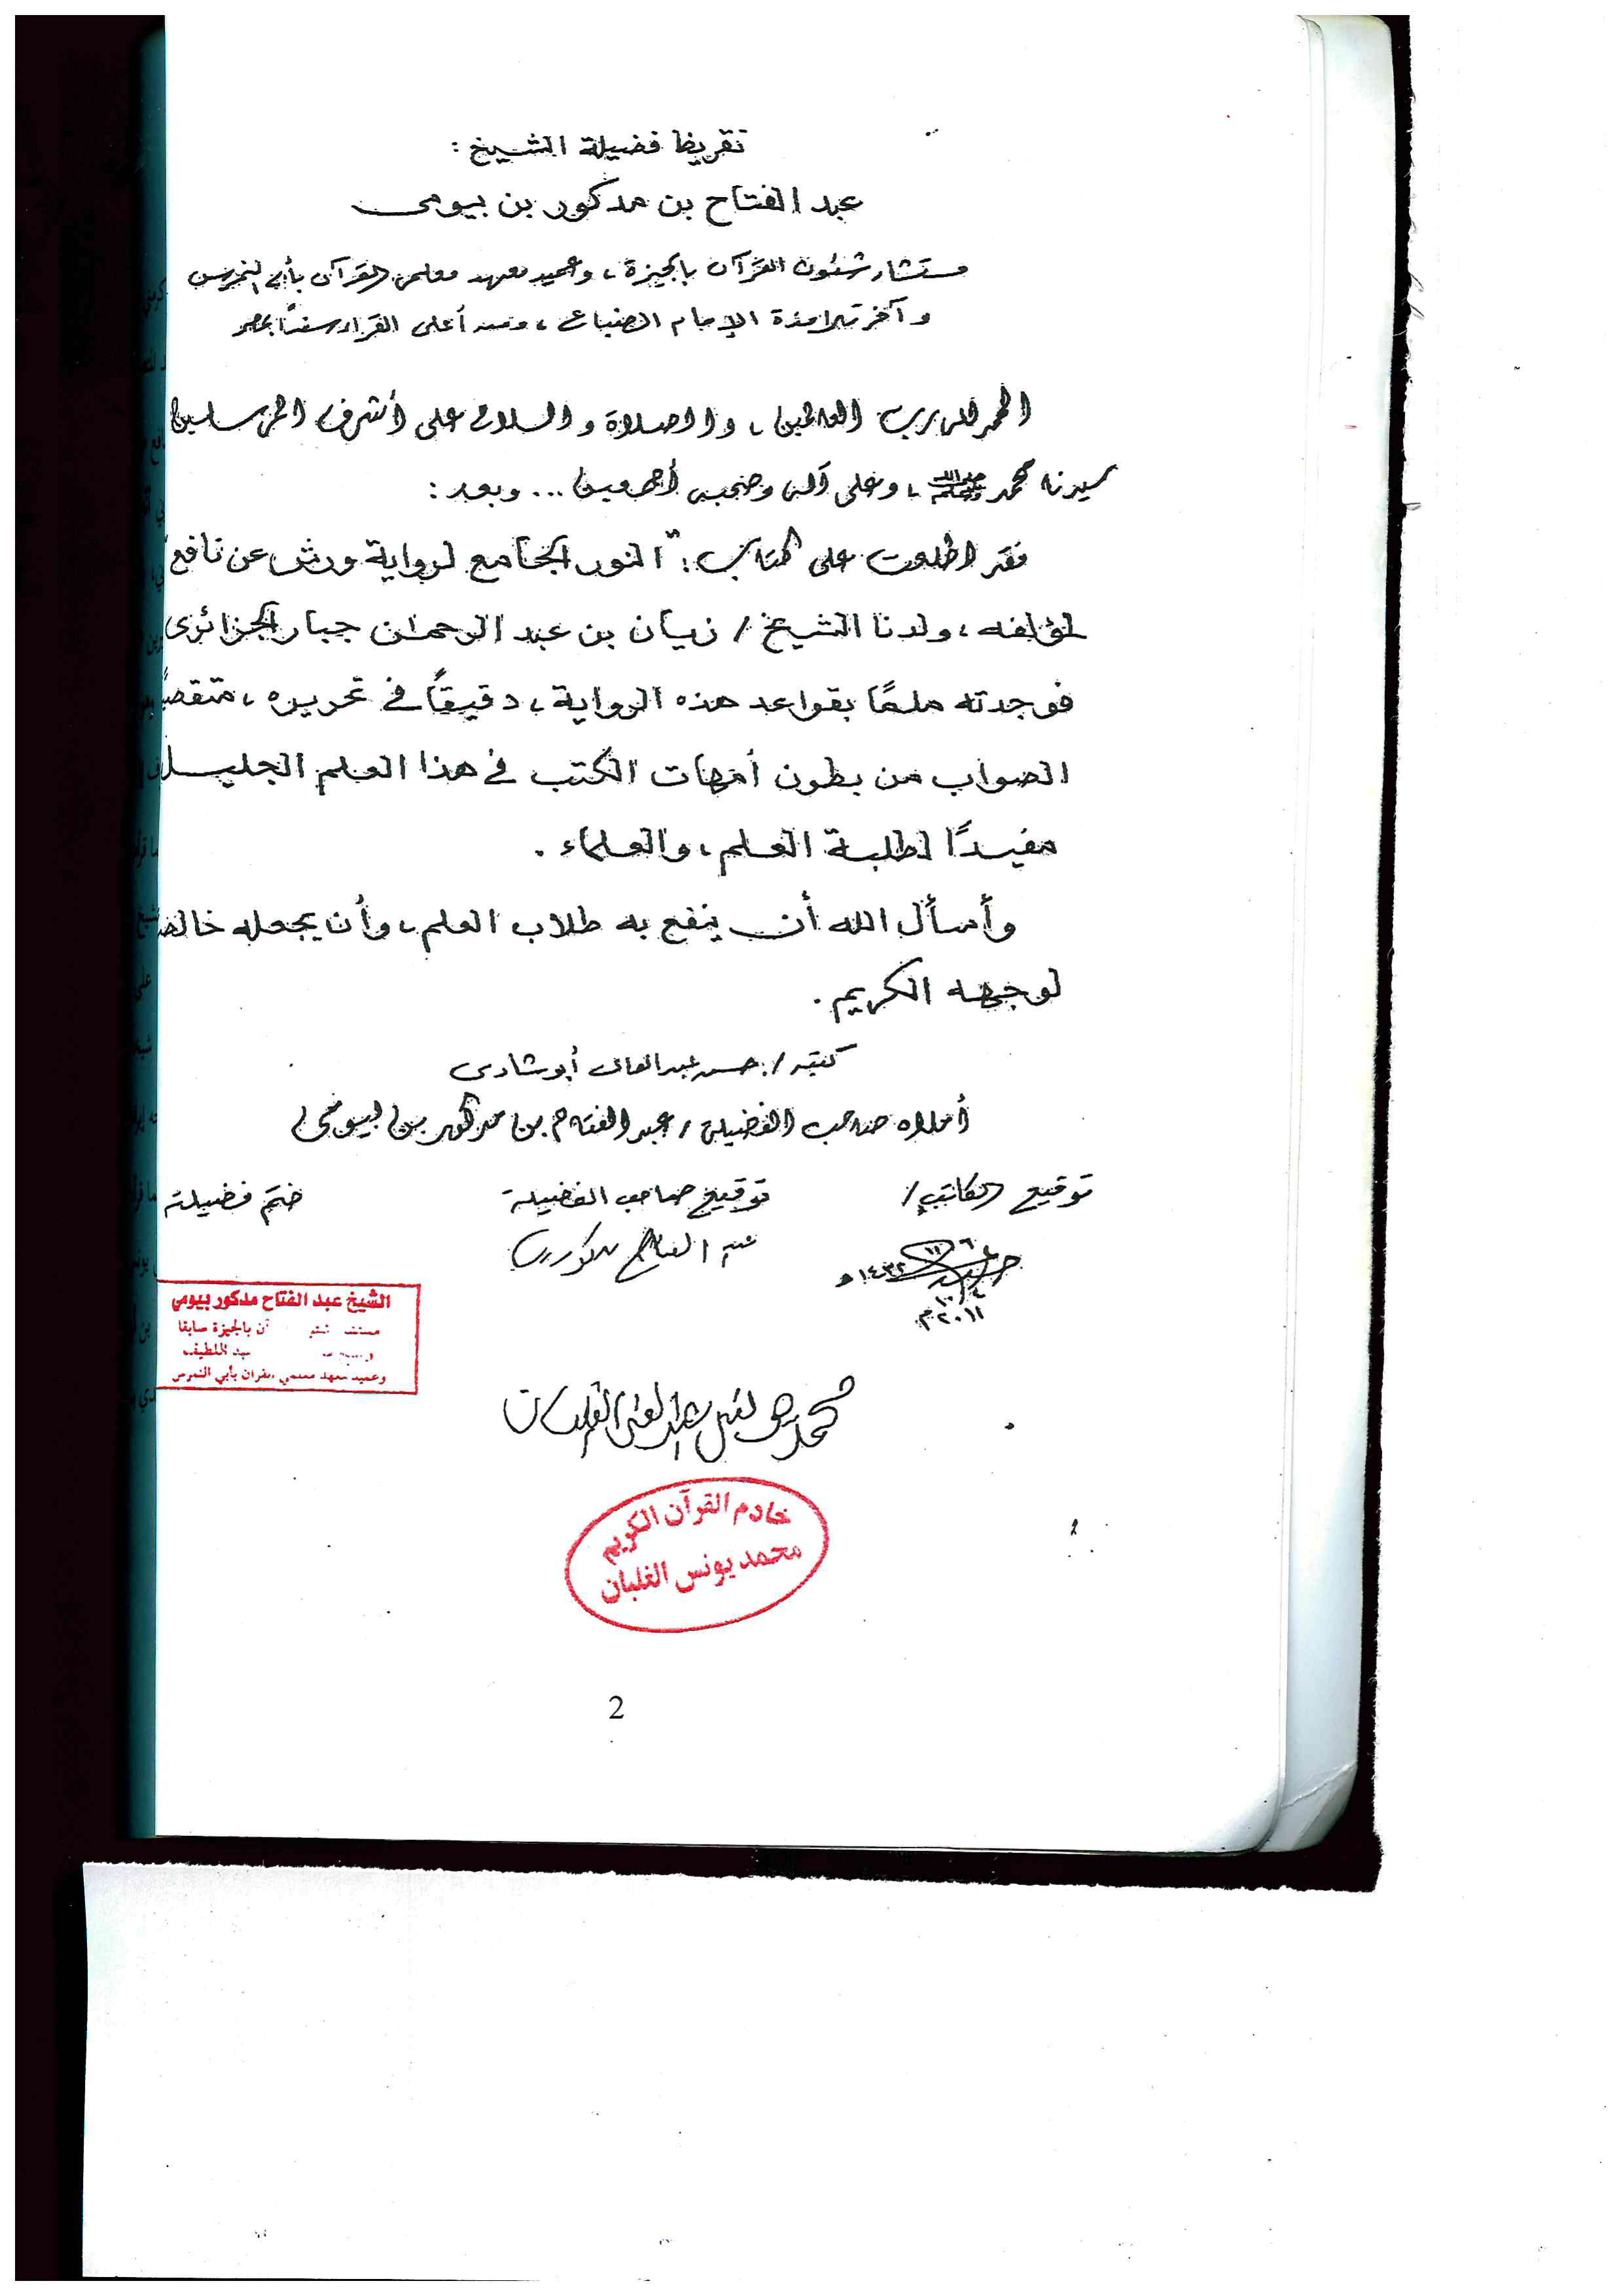 تقريظ فضيلة الشيخ :
عبد الفتاح بن مدكور بن بيومى
مستشار شئون القرآن بالجيزة، وعميد معهد معلمى القرآن بأبى النمرس
وآخر تلامذة الإمام الضباع، ومن أعلى القراء سندًا بمصر
الحمد لله رب العالمين، والصلاة والسلام على أشرف المرسلين
سيدنا محمد ﷺ، وعلى آله وصحبه أجمعين ... وبعد :
فقد اطلعت على كتاب: "النور الجامع لرواية ورش عن نافع"
لمؤلفه، ولدنا الشيخ / زيان بن عبد الرحمان جبار الجزائرى
فوجدته ملمًا بقواعد هذه الرواية، دقيقًا فى تحريره، متقصيًا
الصواب من بطون أمهات الكتب فى هذا العلم الجليل
مفيدًا لطلبة العلم، والعلماء .
وأسأل الله أن ينفع به طلاب العلم، وأن يجعله خالصًا
لوجهه الكريم .
كتبه / حسن عبد العال أبو شادى
أملاه صاحب الفضيلة / عبد الفتاح بن مدكور بن بيومى
توقيع الكاتب / توقيع صاحب الفضيلة ختم فضيلة
عبد الفتاح مدكور
١٤٣٢ هـ
٢٠١١ م
الشيخ عبد الفتاح مدكور بيومي
بالجيزة سابقا
عبد اللطيف
وعميد معهد معلمي القران بأبي النمرس
محمد يونس عبد الغنى الغلبان
خادم القرآن الكريم
محمد يونس الغلبان
2